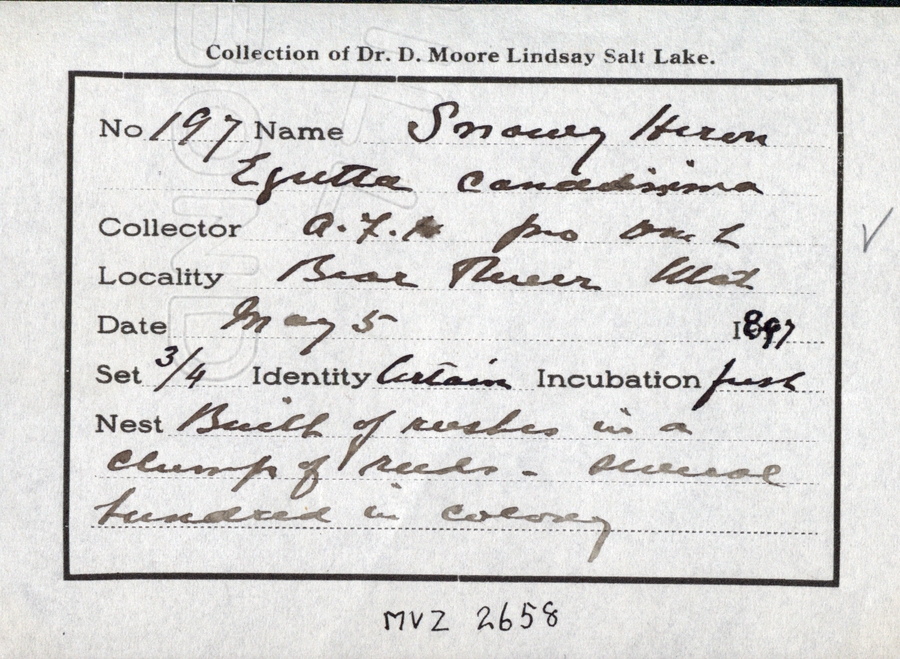 Collection of Dr. D. Moore Lindsay Salt Lake.
No 197 Name Snowy Heron
Egretta candidissima
Collector a. F. pro
Locality Bear River Utah
Date May 5 1897
Set 3/4 Identity Certain Incubation fresh
Nest Built of rushes in a
clump of reeds - several
hundred in colony
MVZ 2658